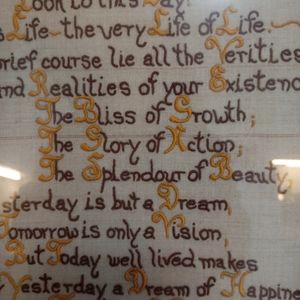 Look to this Day!
Life ~ the very Life of Life. ~
brief course lie all the Verities
and Realities of your Existenc
The Bliss of Growth;
The Glory of Action;
The Splendour of Beauty,
sterday is but a Dream,
Tomorrow is only a Vision,
But Today well lived makes
Yesterday a Dream of Happine